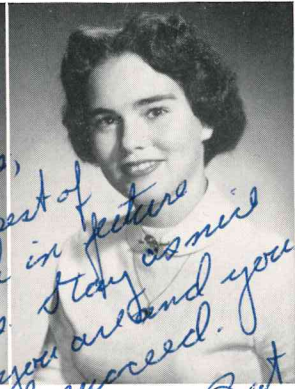 est of
in future
stay as nice
you are and you
succeed.